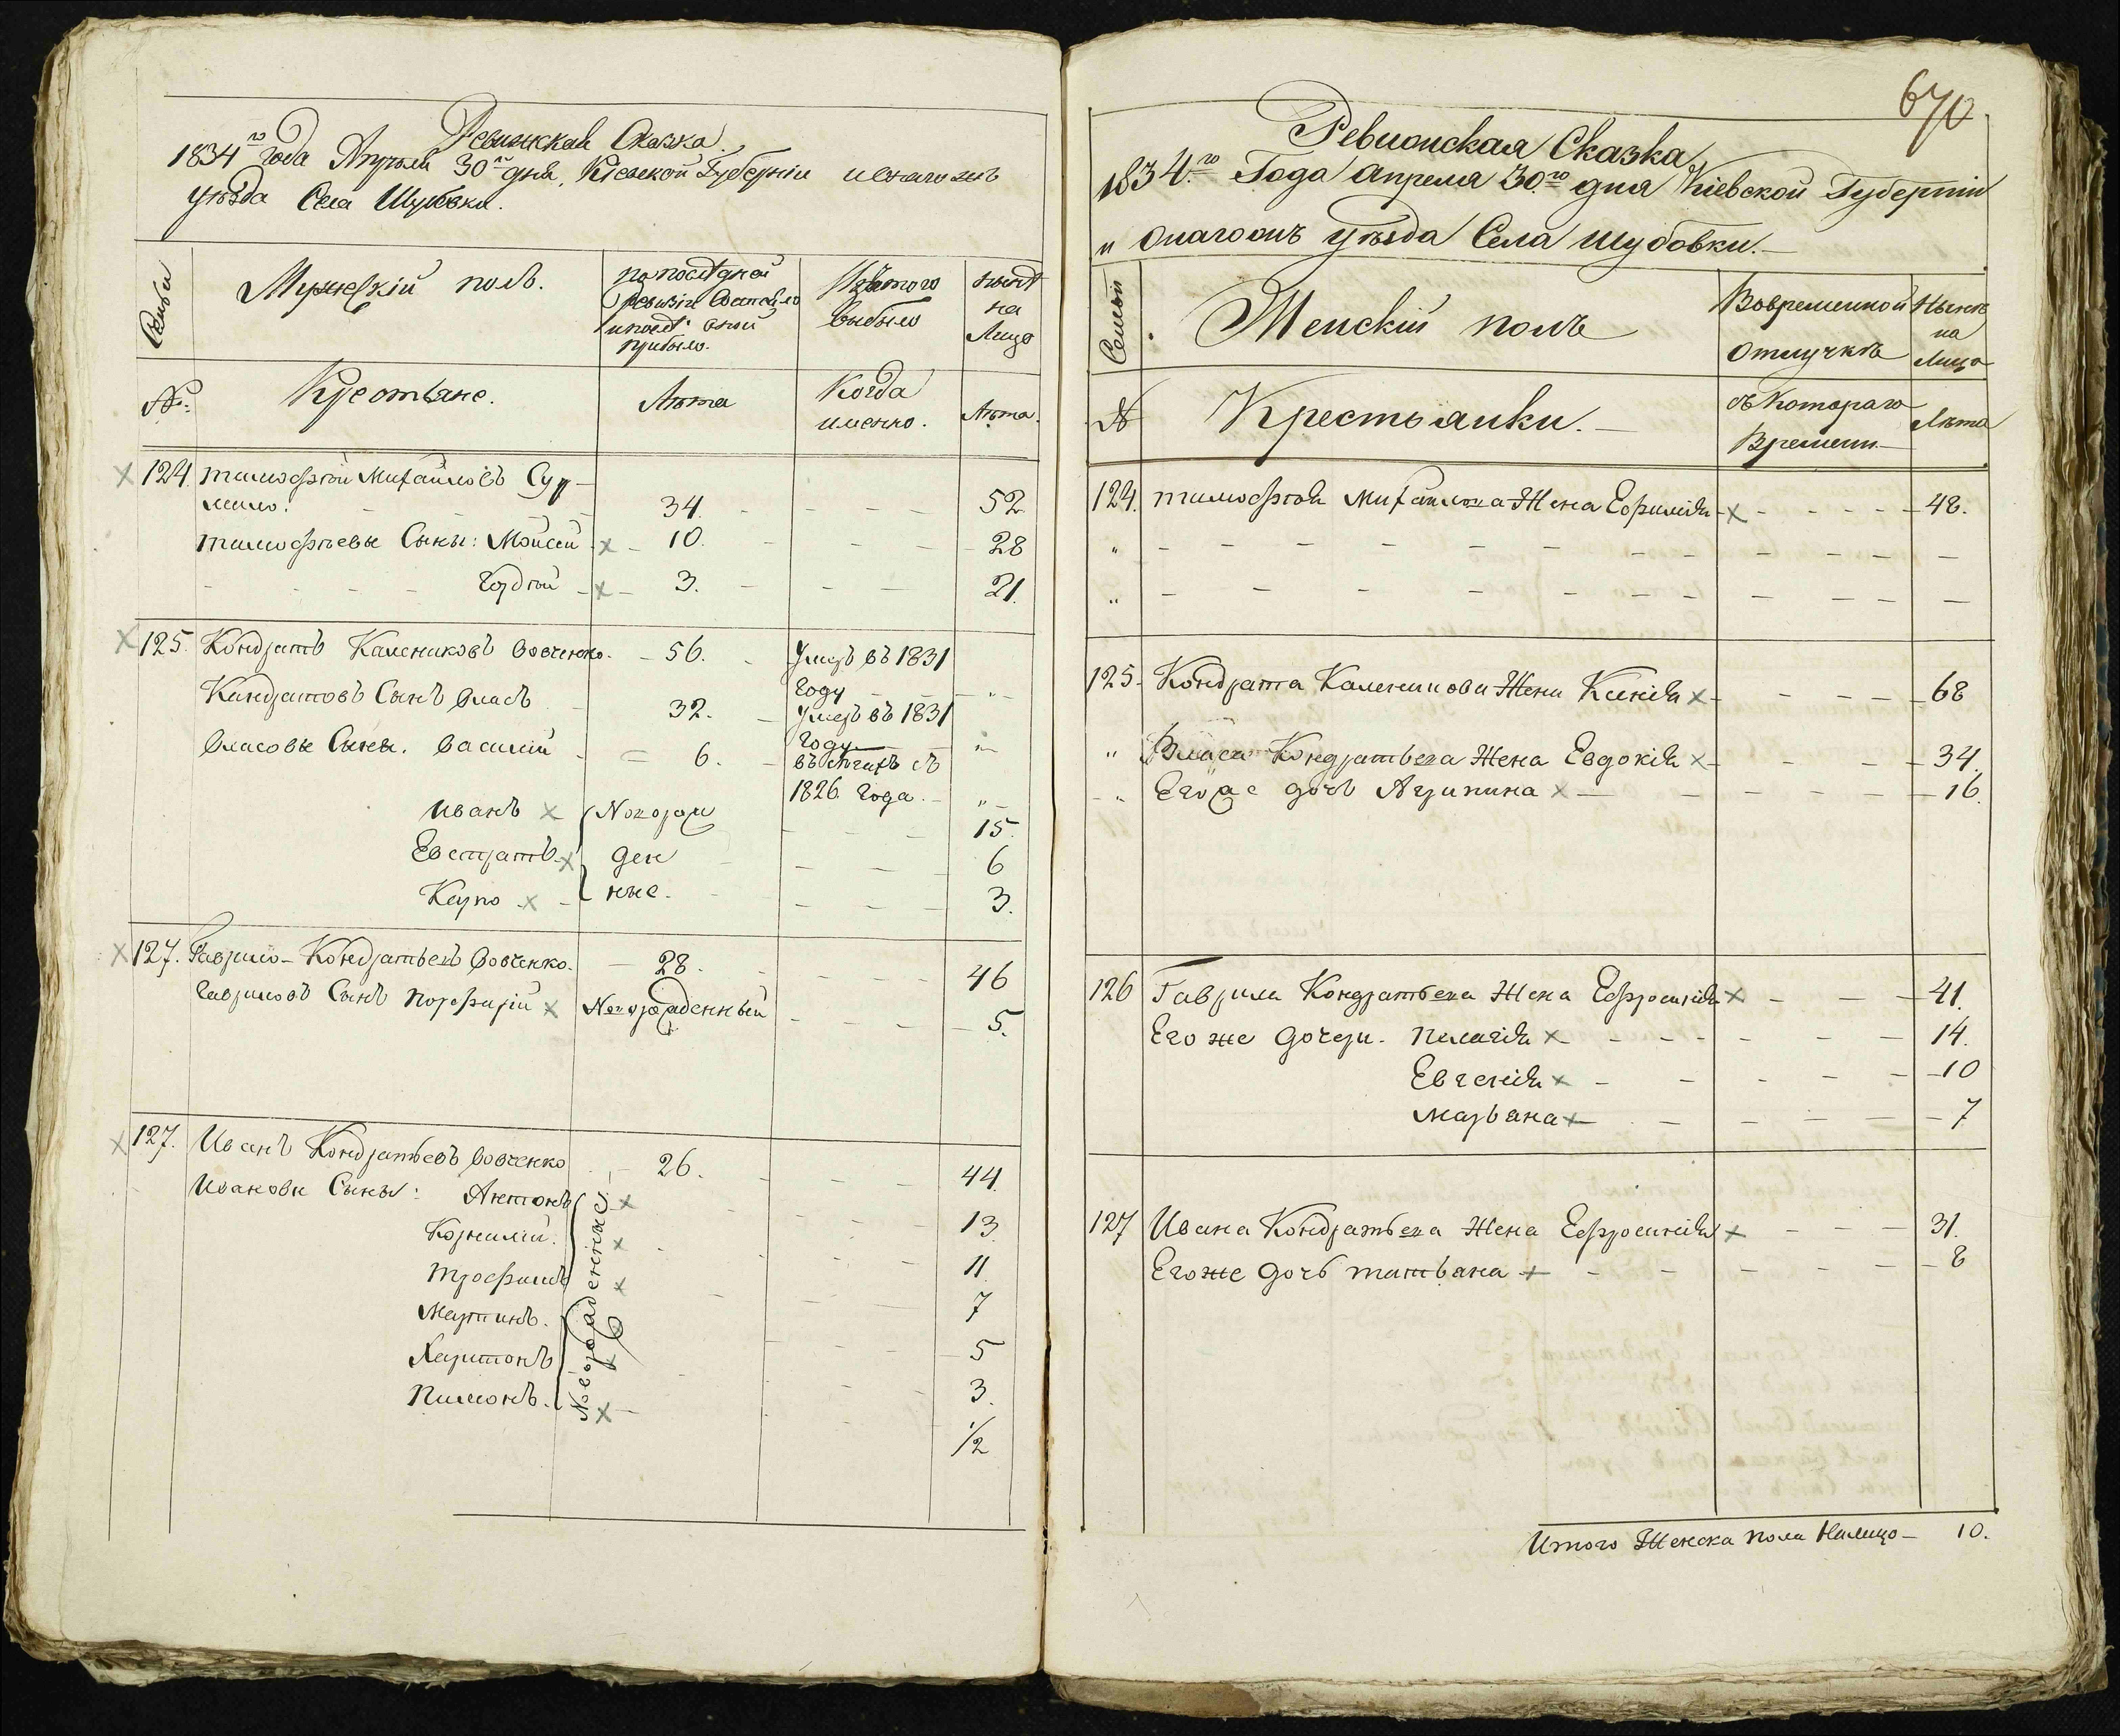 Ревижская Сказка.
1834го года Апреля 30го дня, Кіевской Губерніи и онаго жъ
уѣзда Села Шубовки.
Семьи
Мужескій полъ.
по последней
Ревизіи Состояло
и послѣ оной
прибыло.
Изъ того
выбыло
нынѣ
на
Лицо
№:
Крестьяне.
Лѣта
Когда
именно.
Лѣта.
124. Тимофѣй Михайловъ Сур-
мило. 34. 52
Тимофѣевы Сыны: Мойсей 10. 28
Гордѣй 3. 21.
125. Кондратъ Калениковъ Вовченко. 56. Умеръ въ 1831
Году
Кондратовъ Сынъ Власъ 32. Умеръ въ 1831
году
Власовы Сыны. Василій 6. въ бѣгахъ съ
1826 Года.
Иванъ Новорож 15.
Евстратъ ден 6
Карпо ные. 3.
127. Гаврило Кондратьевъ Вовченко. 28. 46
Гавриловъ Сынъ Порфирій Новорожденный 5.
127. Иванъ Кондратьевъ Вовченко 26. 44.
Ивановы Сыны: Антонъ Новорожденные 13
Корнилій. 11.
Трофимъ 7
Мартинъ. 5
Харитонъ 3.
Пимонъ. 1/2
670.
Ревионская Сказка
1834.го Года апреля 30.го дня Кіевской Губерніи
и Онагожъ уѣзда Села Шубовки.
Семьи
Женскій полъ
Вовременной
Отлучкѣ
Нынѣ
на
Лицо
№
Крестьянки.
съ Котораго
Времени
Лѣта
124. Тимофѣя Михайлова Жена Ефимія 48.
125. Кондрата Каленикови Жена Ксенія 68
" Власа Кондратьева Жена Евдокія 34.
" Егоже дочь Агрипина 16.
126 Гаврила Кондратьева Жена Ефросинія 41.
Его же дочери. Пелагія 14.
Евгенія 10
Марьяна 7
127 Ивана Кондратьева Жена Ефросинія 31.
Егоже дочь татьяна 8
Итого Женска пола Налицо 10.